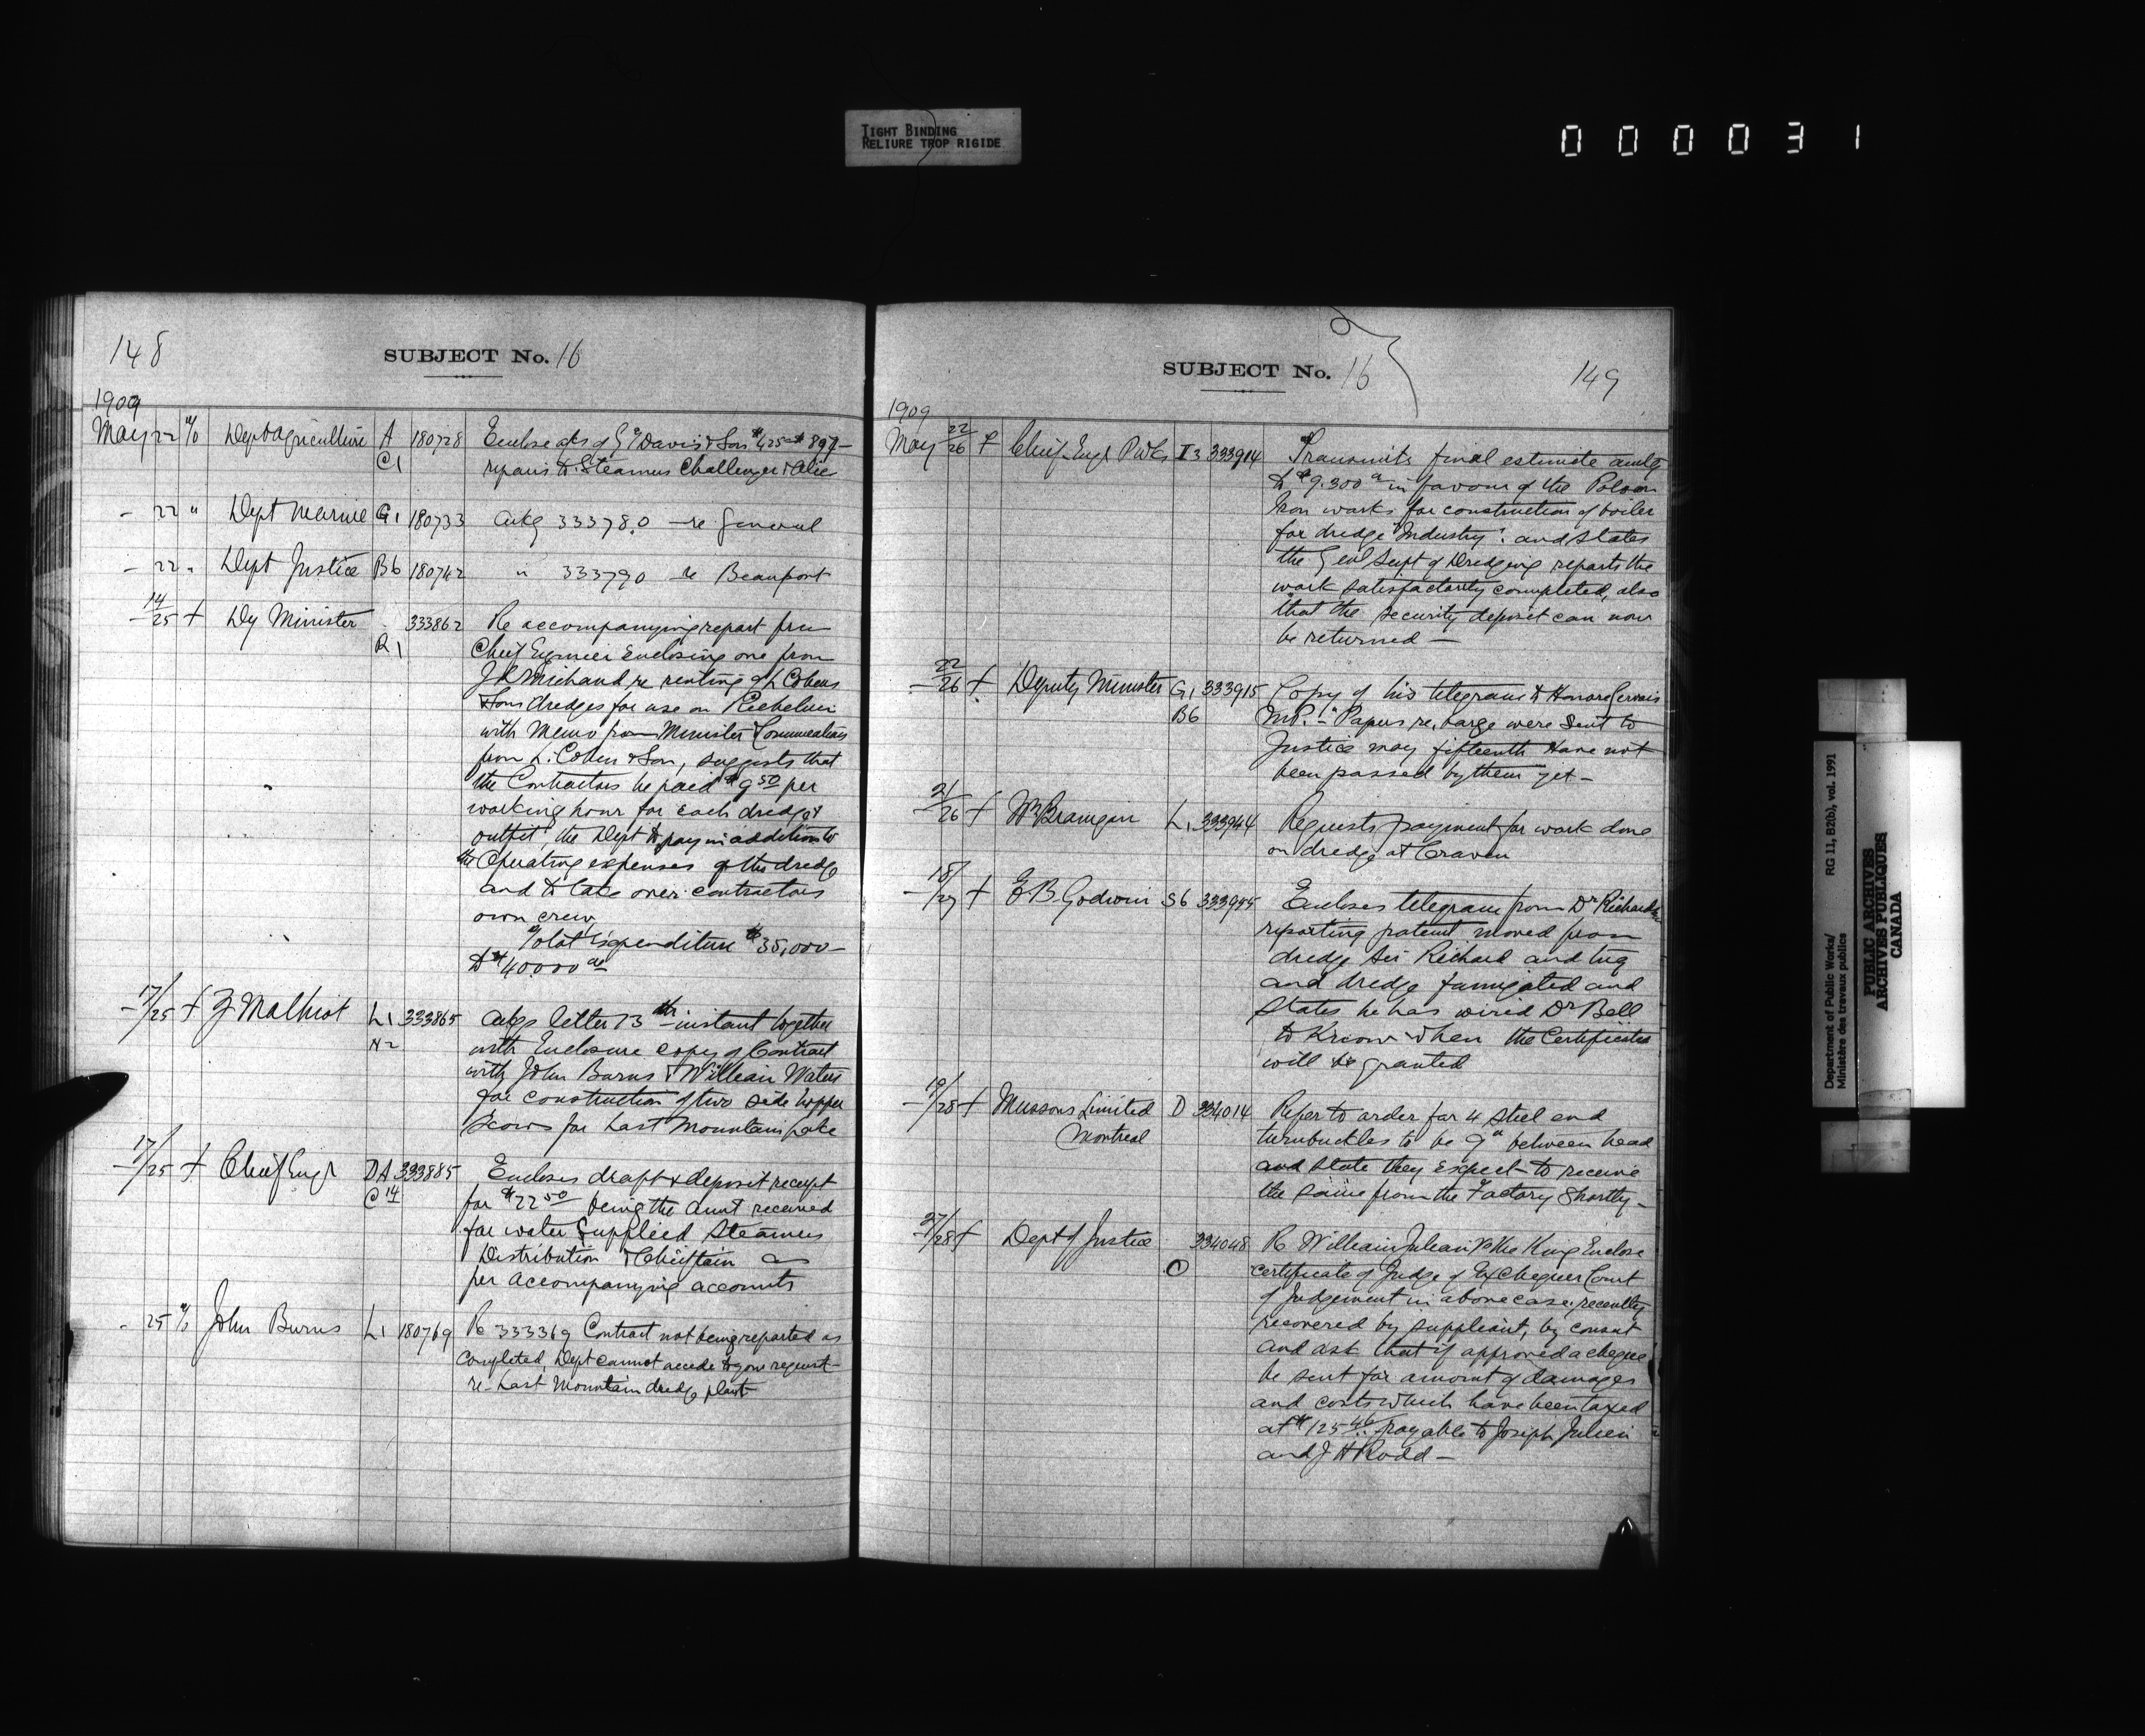 TIGHT BINDING
RELIURE TROP RIGIDE
000031
148
SUBJECT No. 16
1909
May 22 Dept Agriculture A 180728 Enclose a/cs of Davis & Son
C1 repairs to Steamers Challenger & Alice
- 22 " Dept Marine G1 180733 Ackg 333780 - re General
- 22 " Dept Justice B6 180742 " 333790 re Beauport
14/25 + Dy Minister 333862 Re accompanying report from
R1 Chief Engineer Enclosing one from
J R Michaud re renting of L Cohens
& Sons dredges for use on Richelieu
with Memo from Minister & Communication
from L. Cohen & Son, suggests that
the Contractors be paid $9 50 per
working hour for each dredge &
outfit, the Dept to pay in addition to
the Operating expenses of the dredge
and to take over contractors
own crew
Total Expenditure $35,000 -
to $40000 00
- 17/25 + Z Malhiot L1 333865 Ackgs letter 13th instant together
N2 with Enclosure copy of Contract
with John Burns & William Waters
for construction of two side hopper
Scows for Last Mountain Lake
- 17/25 + Chief Engr DA 333885 Encloses draft & deposit receipt
C14 for $22 50 being the amt received
for water supplied Steamers
Distribution & Chieftain as
per accompanying accounts
- 25 John Burns L1 180769 Re 333369 Contract not being reported as
completed, Dept cannot accede to your request
re Last Mountain dredge plant
SUBJECT No. 16 149
1909
May 22/26 + Chief Engr P.W.D. I3 333914 Transmits final estimate amtg
to $9.300 00 in favour of the Polson
Iron works for construction of boiler
for dredge "Industry". and states
the Genl Supt of Dredging reports the
work satisfactorily completed, also
that the security deposit can now
be returned -
- 22/26 + Deputy Minister G1 333915 Copy of his telegram to Honore Gervais
B6 M.P. - "Papers re, barge were sent to
Justice may fifteenth Have not
been passed by them yet -
21/26 + Wm L1 333944 Requests payment for work done
on dredge at Craven
- 18/27 + E B Godwin S6 333995 Encloses telegram from Dr Richardson
reporting patient moved from
dredge Sir Richard and tug
and dredge fumigated and
States he has wired Dr Bell
to Know when the Certificates
will be granted
- 19/28 + Mussons Limited D 334014 Refer to order for 4 steel end
Montreal turnbuckles to be 9" between head
and state they expect to receive
the same from the Factory Shortly -
27/28 + Dept of Justice 334048 Re William Julien vs the King Enclose
O certificate of Judge of Exchequer Court
of Judgement in above case, recently
recovered by suppliant, by consent
and ask that if approved a cheque
be sent for amount of damages
and costs which have been taxed
at $125 46 payable to Joseph Julien
and J H Rodd -
Department of Public Works/ RG 11, B2(b), vol. 1991
Ministère des travaux publics
PUBLIC ARCHIVES
ARCHIVES PUBLIQUES
CANADA